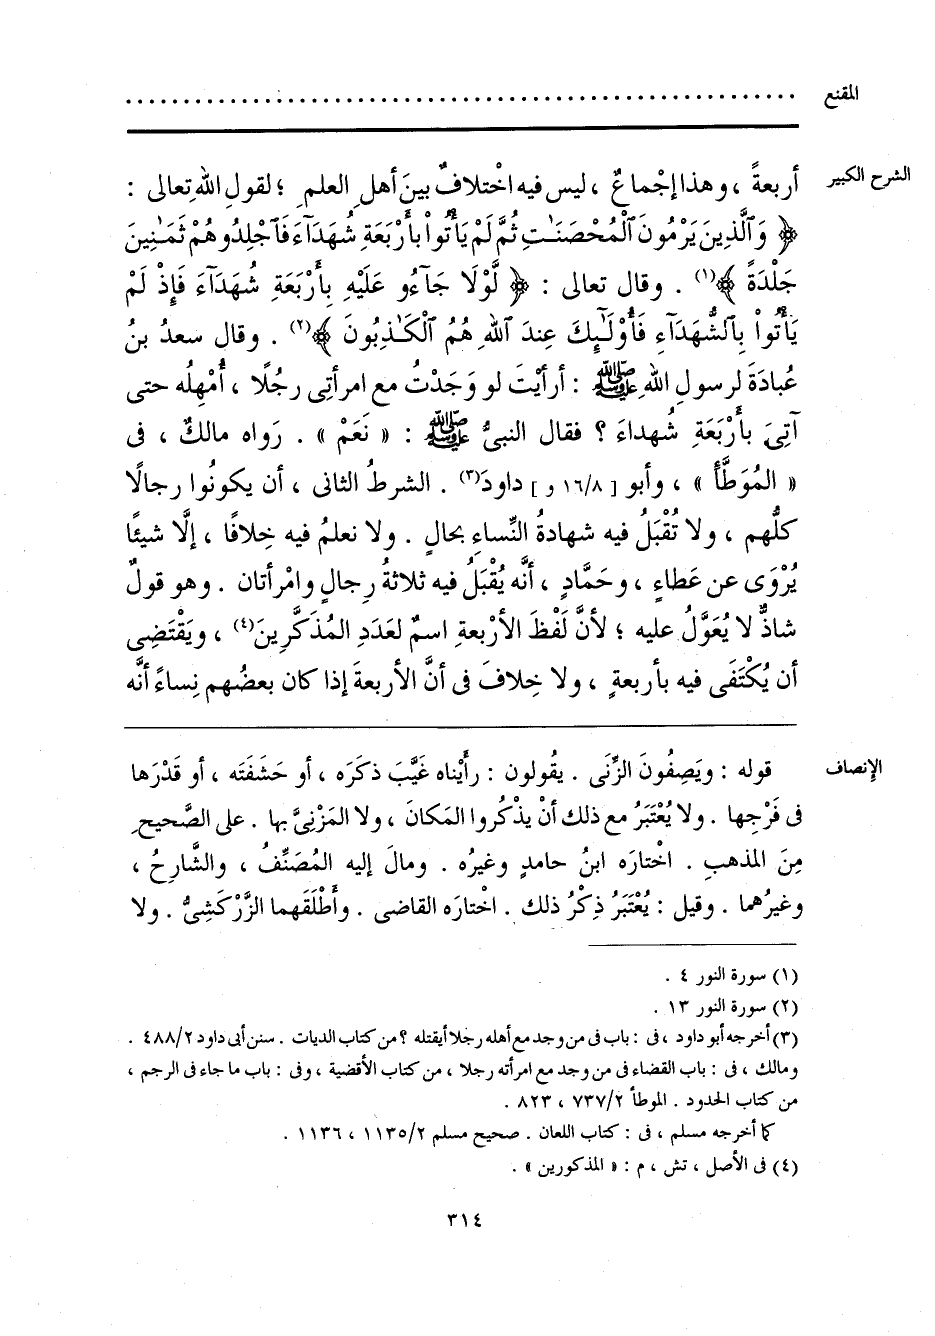 المقنع ................................................................
الشرح الكبير
أربعةً ، وهذا إجْماعٌ ، ليس فيه اخْتلافٌ بينَ أهلِ العلمِ ؛ لقولِ اللهِ تعالى :
﴿ وَٱلَّذِينَ يَرْمُونَ ٱلْمُحْصَنَـٰتِ ثُمَّ لَمْ يَأْتُواْ بِأَرْبَعَةِ شُهَدَآءَ فَٱجْلِدُوهُمْ ثَمَـٰنِينَ
جَلْدَةً ﴾(١) . وقال تعالى : ﴿ لَّوْلَا جَآءُو عَلَيْهِ بِأَرْبَعَةِ شُهَدَآءَ فَإِذْ لَمْ
يَأْتُواْ بِٱلشُّهَدَآءِ فَأُوْلَـٰٓئِكَ عِندَ ٱللهِ هُمُ ٱلْكَـٰذِبُونَ ﴾(٢) . وقال سعدُ بنُ
عُبادَةَ لرسولِ اللهِ ﷺ : أرأيْتَ لو وَجَدْتُ مع امرأتِى رجُلًا ، أُمْهِلُه حتى
آتِىَ بأَرْبَعَةِ شُهداءَ ؟ فقال النبىُّ ﷺ : « نَعَمْ » . رَواه مالكٌ ، فى
« المُوَطَّأ » ، وأبو [ ١٦/٨ و ] داودَ(٣) . الشرطُ الثانى ، أن يكونُوا رجالًا
كلُّهم ، ولا تُقْبَلُ فيه شهادةُ النِّساءِ بحالٍ . ولا نعلمُ فيه خِلافًا ، إلَّا شيئًا
يُرْوَى عن عَطاءٍ ، وحَمَّادٍ ، أنَّه يُقْبَلُ فيه ثلاثةُ رِجالٍ وامْرأتان . وهو قولٌ
شاذٌّ لا يُعَوَّلُ عليه ؛ لأنَّ لَفْظَ الأرْبعةِ اسمٌ لعَدَدِ المُذَكَّرِينَ(٤) ، ويَقْتَضِى
أن يُكْتَفَى فيه بأربعةٍ ، ولا خِلافَ فى أنَّ الأربعةَ إذا كان بعضُهم نِساءً أنَّه
الإنصاف
قوله : ويَصِفُونَ الزِّنَى . يقُولون : رأَيْناه غَيَّبَ ذكَرَه ، أو حَشَفَتَه ، أو قَدْرَها
فى فَرْجِها . ولا يُعْتَبَرُ مع ذلك أنْ يذْكُروا المَكانَ ، ولا المَزْنِىَّ بها . على الصَّحيحِ
مِنَ المذهبِ . اخْتارَه ابنُ حامدٍ وغيرُه . ومالَ إليه المُصَنِّفُ ، والشَّارِحُ ،
وغيرُهما . وقيل : يُعْتَبَرُ ذِكْرُ ذلك . اختارَه القاضى . وأَطْلَقَهما الزَّرْكَشِىُّ . ولا
(١) سورة النور ٤ .
(٢) سورة النور ١٣ .
(٣) أخرجه أبو داود ، فى : باب فى من وجد مع أهله رجلا أيقتله ؟ من كتاب الديات . سنن أبى داود ٤٨٨/٢ .
ومالك ، فى : باب القضاء فى من وجد مع امرأته رجلا ، من كتاب الأقضية ، وفى : باب ما جاء فى الرجم ،
من كتاب الحدود . الموطأ ٧٣٧/٢ ، ٨٢٣ .
كما أخرجه مسلم ، فى : كتاب اللعان . صحيح مسلم ١١٣٥/٢ ، ١١٣٦ .
(٤) فى الأصل ، تش ، م : « المذكورين » .
٣١٤